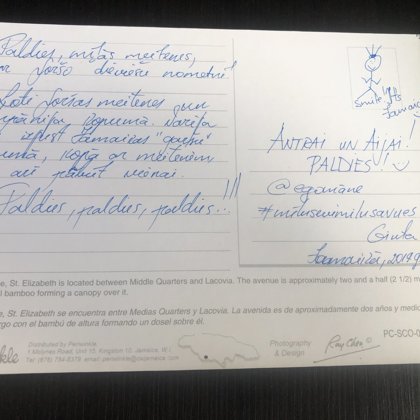 Paldies, mīļās meitenes,
par foršo dieviešu nometni!
Ļoti foršas meitenes un
kopumā. Varēja
izjust Jamaikas "garšu"
kopā ar meitenēm
arī pabūt vienai.
Paldies, paldies, paldies...!!!
Smile Its
Jamaica
ANTRAI UN AIJAI
PALDIES!
@egomāne
Ginta
Jamaikā, 2019
St. Elizabeth is located between Middle Quarters and Lacovia. The avenue is approximately two and a half (2 1/2) m
bamboo forming a canopy over it.
St. Elizabeth se encuentra entre Medias Quarters y Lacovia. La avenida es de aproximadamente dos años y medio
con el bambú de altura formando un dosel sobre él.
Distributed by Periwinkle
1 Molynes Road, Unit 15, Kingston 10, Jamaica, W.I
Photography
& Design
Ray Chen ©
PC-SCO-0